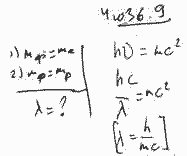 36.9
1) mф=me
2) mф=mp
λ=?
hν=mc²
hc/λ=mc²
[λ=h/mc]